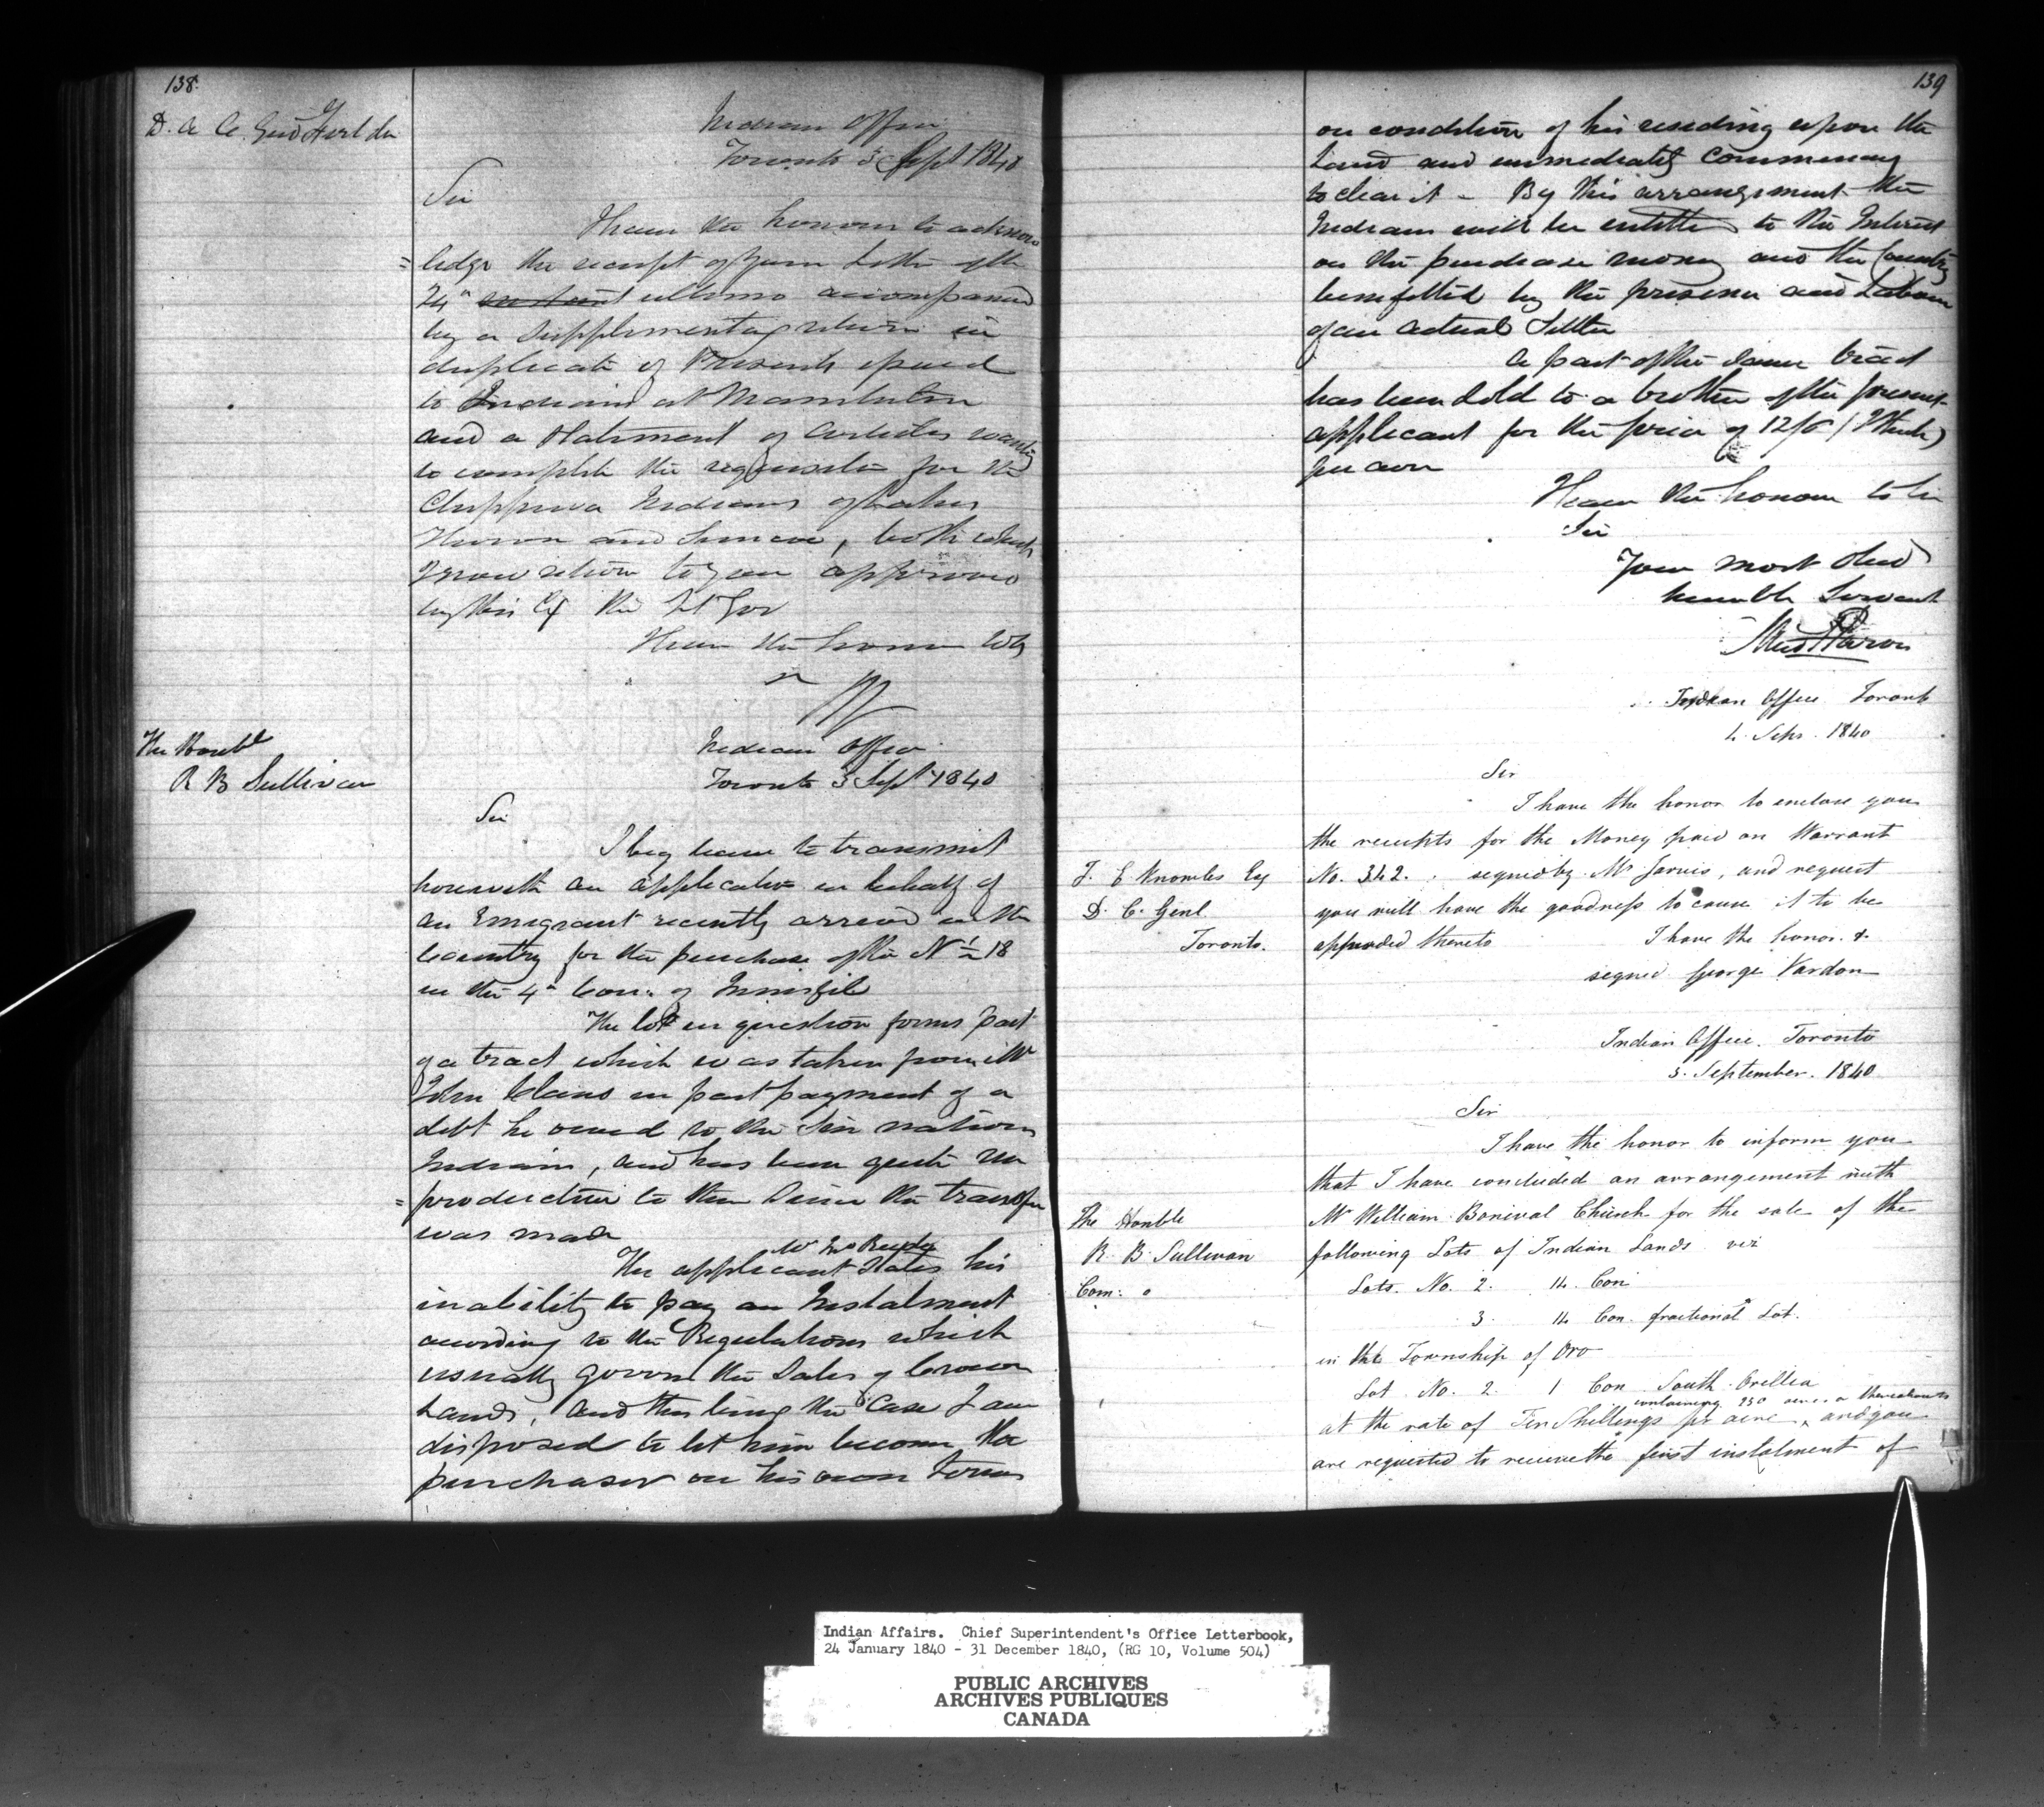 138.
D. A. C. Genl
Indian Office
Toronto 3 Sept 1840
Sir
I have the honour to acknow
= ledge the receipt of your Letter of the
24th instant ultimo accompanied
by a Supplementary return in
duplicate of Presents issued
to Indians at Manitulin
and a Statement of Articles wanting
to complete the requisition for the
Chippewa Indians of Lakes
Huron and Simcoe, both which
I now return to you approved
by His Ex the Lt Gov
I have the honor to be
The Honble
R B Sullivan
Indian Office
Toronto 3 Sept 1840
Sir
I beg leave to transmit
herewith an application in behalf of
an Emigrant recently arrived in the
Country for the purchase of the N ½ 18
in the 4th Con: of Innisfil
The lot in question forms part
of a tract which was taken from Mr
John Claus in part payment of a
debt he owed to the Six nations
Indians, and has been quite un
= productive to them Since the transfer
was made
The applicant States his
inability to pay an Instalment
according to the Regulations which
usually govern the Sales of Crown
Lands, and this being the Case I am
disposed to let him become the
purchaser on his own terms
139
on condition of his residing upon the
Land and immediately commencing
to clear it - By this arrangement the
Indians will be entitled to the Interest
on the purchase money and the Country
benefitted by the presence and Labour
of an actual Settler
A part of the same tract
has been Sold to a brother of the present
applicant for the price of 12/6 (I think)
per acre
I have the honour to be
Sir
Your most obed
humble Servant
Indian Office Toronto
4 Sepr. 1840
Sir
I have the honor to enclose you
the receipts for the Money paid on Warrant
No. 342. signed by Mr Jarvis, and request
you will have the goodness to cause it to be
appended thereto I have the honor. &
signed George Vardon
Esq
D. C. Genl
Toronto.
Indian Office. Toronto
5. September. 1840
Sir
I have the honor to inform you
that I have concluded an arrangement with
Mr William Bonival Church for the sale of the
following Lots of Indian Lands viz
The Honble
R. B. Sullivan
Com:
Lots. No. 2. 14. Con
3. 14 Con. fractional Lot.
in the Township of Oro
Lot No. 2. 1 Con South Orillia
containing 230 acres or thereabouts
at the rate of Ten Shillings per acre, and you
are requested to receive the first instalment of
Indian Affairs. Chief Superintendent's Office Letterbook,
24 January 1840 - 31 December 1840, (RG 10, Volume 504)
PUBLIC ARCHIVES
ARCHIVES PUBLIQUES
CANADA